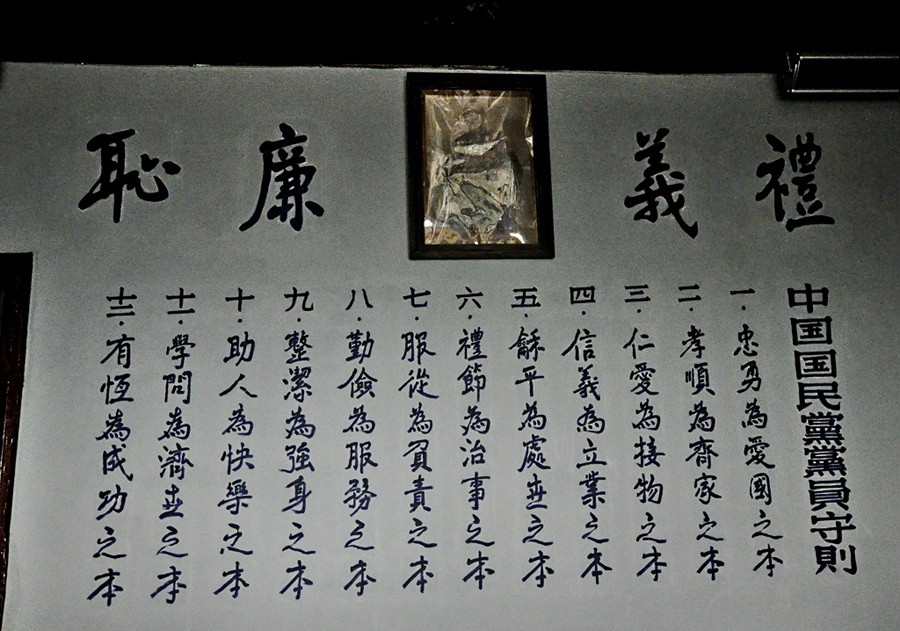 禮義廉恥
中国国民黨黨員守則
一.忠勇為愛國之本
二.孝順為齊家之本
三.仁愛為接物之本
四.信義為立業之本
五.龢平為處世之本
六.禮節為治事之本
七.服從為負責之本
八.勤儉為服務之本
九.整潔為強身之本
十.助人為快樂之本
十一.學問為濟世之本
十二.有恆為成功之本